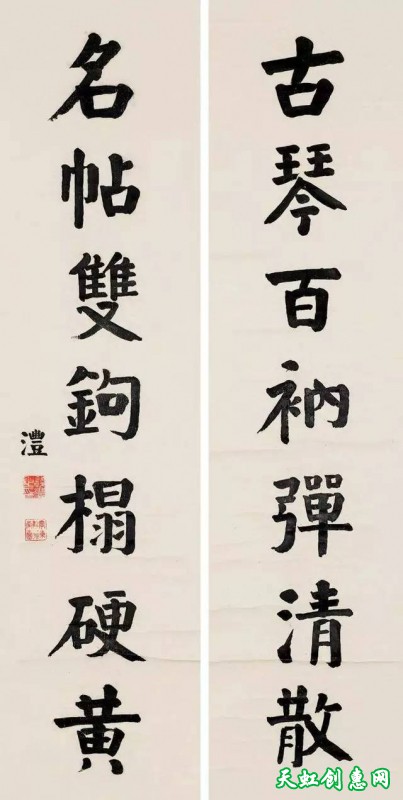 古琴百衲彈清散
名帖雙鉤榻硬黃
澧
天虹创惠网